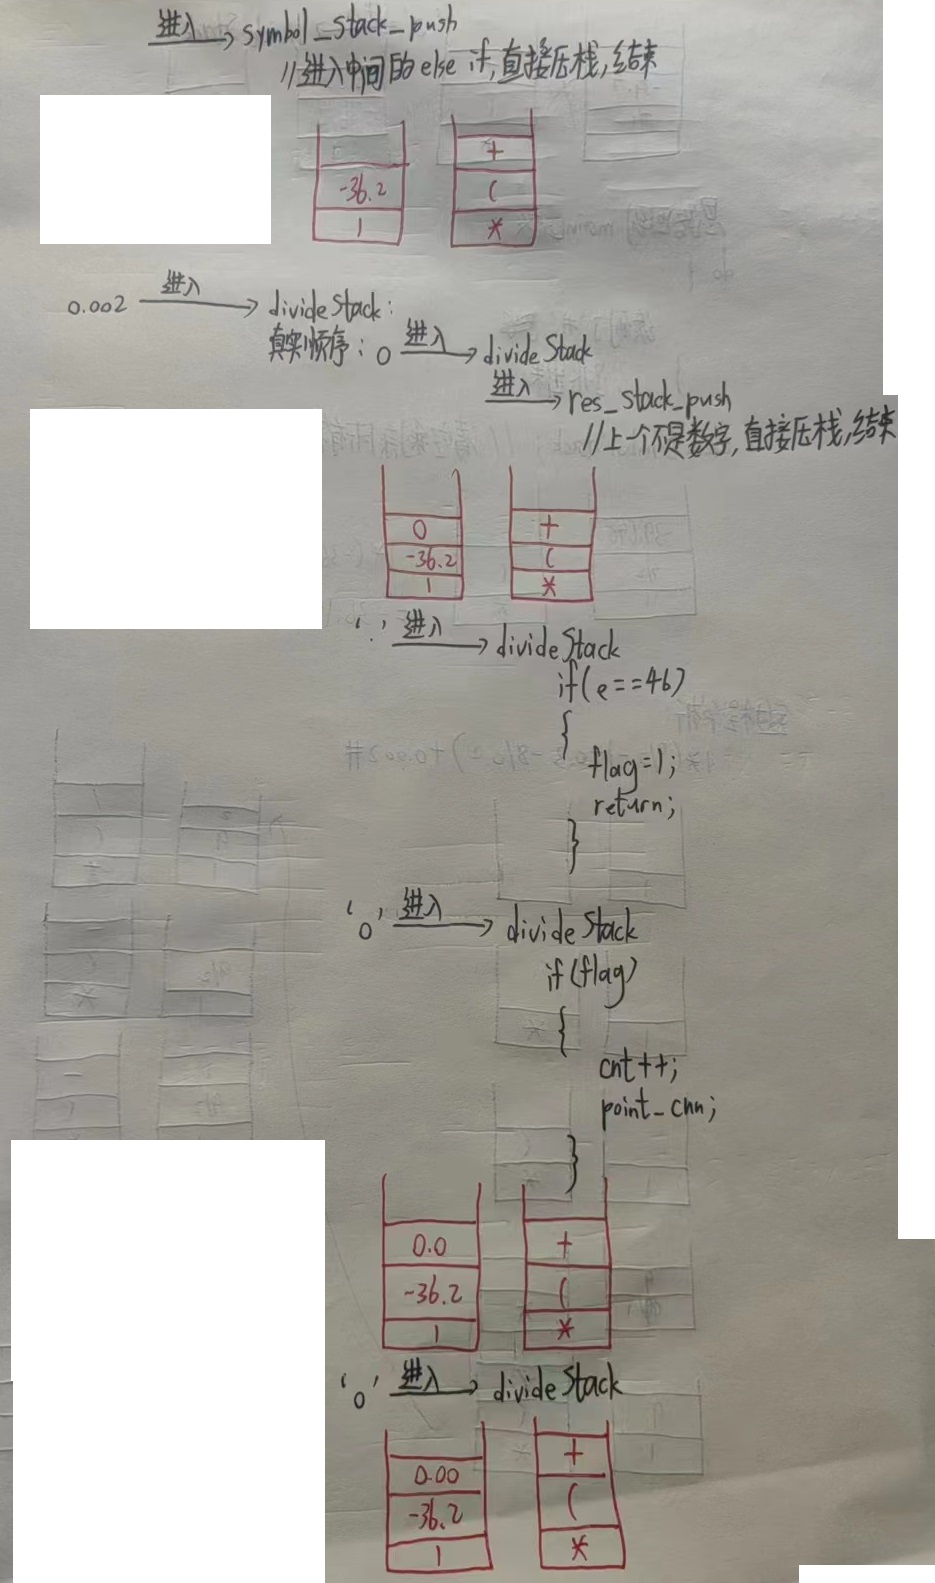 进入 symbol_stack_push
//进入中间的else if,直接压栈,结束
+
-36.2 (
1 *
0.002 进入 divideStack:
真实顺序: 0 进入 divideStack
进入 res_stack_push
//上一个不是数字,直接压栈,结束
0 +
-36.2 (
1 *
'.' 进入 divideStack
if(e==46)
{
flag=1;
return;
}
'0' 进入 divideStack
if(flag)
{
cnt++;
point_cnn;
}
0.0 +
-36.2 (
1 *
'0' 进入 divideStack
0.00 +
-36.2 (
1 *